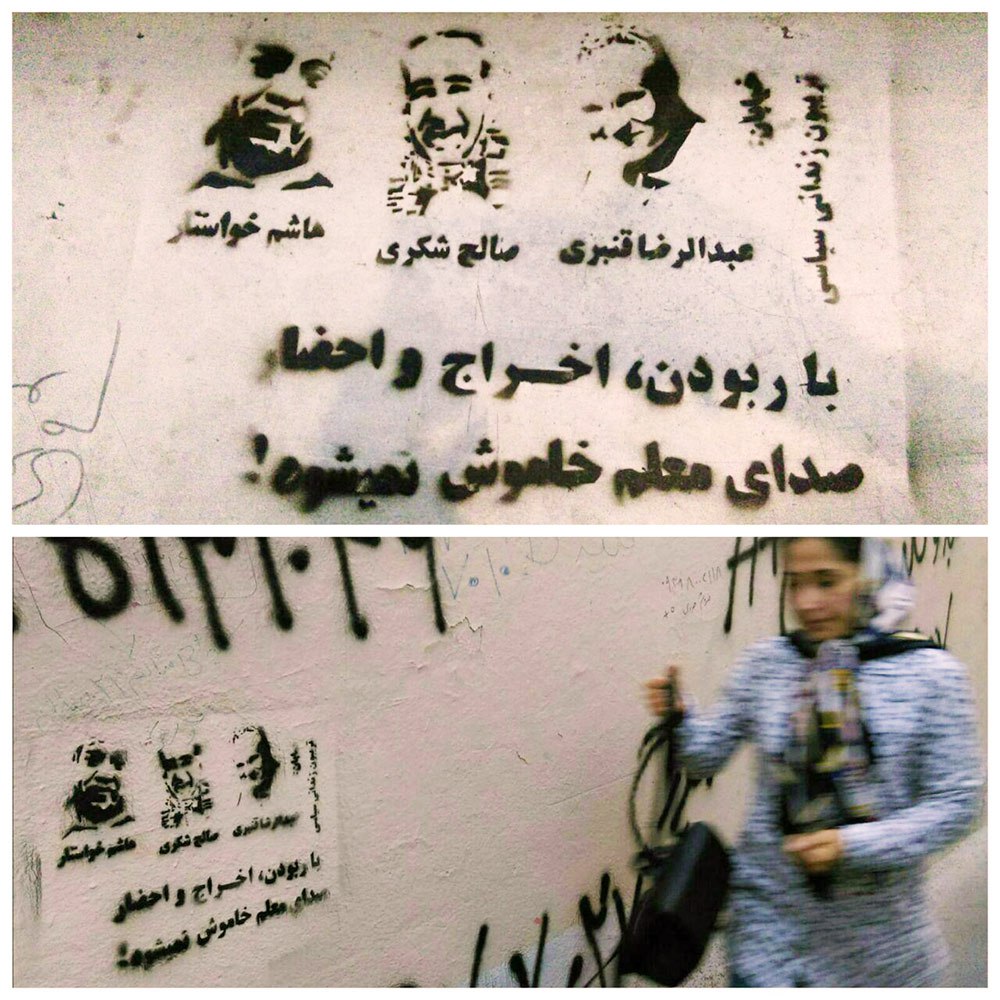 خیابان
تریبون زندانی سیاسی
عبدالرضا قنبری
صالح شکری
هاشم خواستار
با ربودن، اخراج و احضار
صدای معلم خاموش نمیشود!
خیابان
تریبون زندانی سیاسی
عبدالرضا قنبری
صالح شکری
هاشم خواستار
با ربودن، اخراج و احضار
صدای معلم خاموش نمیشود!